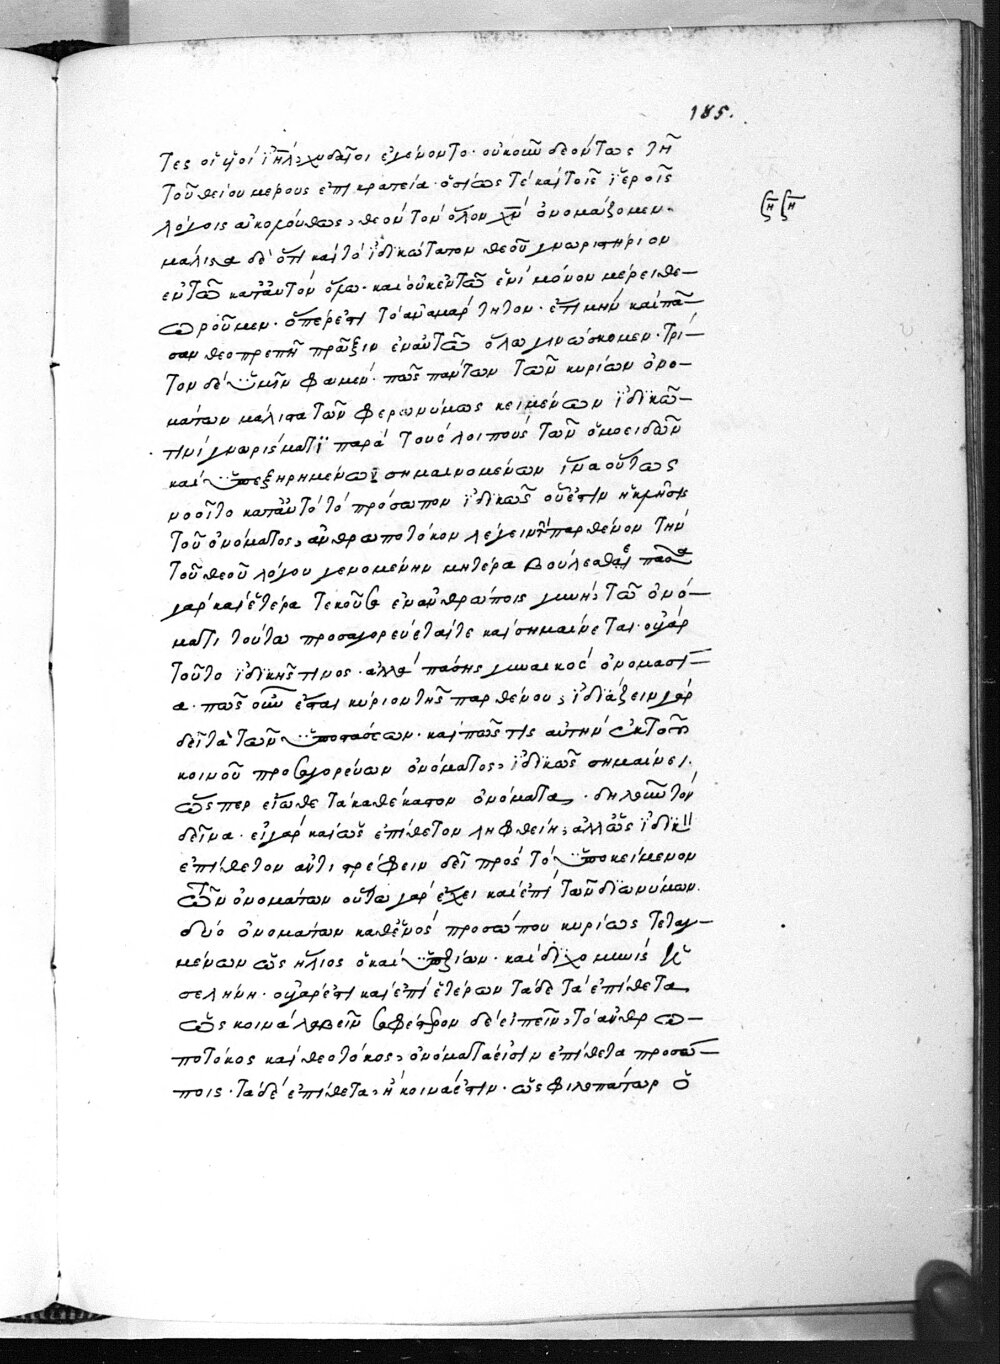 185.
τες οἱ υἱοὶ ἰηλ, χυδαῖοι ἐγένοντο· οὐκοῦν δεόντως τῆ
τοῦ θείου μέρους ἐπικρατεία· ὁσίως τὲ καὶ τοῖς ἱεροῖς
λόγοις ἀκολούθως, θεὸν τὸν ὅλον χν ὀνομάζομεν·
μάλιστα δὲ ὅτι καὶ τὸ ἰδικώτατον θεοῦ γνωριστήριον
ἐν τῶ κατ' αὐτὸν ὅλω· καὶ οὐκ ἐν τῶ ἑνὶ μόνον μέρει θε–
ωροῦμεν· ὅπερ ἐστι τὸ ἀναμάρτητον· ἔτι μὴν καὶ πᾶ–
σαν θεοπρεπῆ πρᾶξιν ἐν αὐτῶ ὅλω γινώσκομεν· τρί–
τον δὲ ὑμῖν φαμέν· πῶς πάντων τῶν κυρίων ὀνο–
μάτων μάλιστα τῶν φερωνύμως κειμένων ἰδικῶ–
τινὶ γνωρίσματι παρὰ τοὺς λοιποὺς τῶν ὁμοειδῶν
καὶ ὑπεξηρημένω σημαινομένων ἵνα οὕτως
νοοῖτο κατ' αὐτὸ τὸ πρόσωπον ἰδικῶς οὗ ἐστιν ἡ κλῆσις
τοῦ ὀνόματος, ἀνθρωποτόκον λέγειν τὴν παρθένον τὴν
τοῦ θεοῦ λόγου γενομένην μητέρα βούλεσθαι πᾶσα
γὰρ καὶ ἑτέρα τεκοῦσα ἐν ἀνθρώποις γυνὴ, τῶ ὀνό–
ματι τούτω προσαγορεύεταί τε καὶ σημαίνεται· οὐ γὰρ
τοῦτο ἰδικῆς τινος· ἀλλὰ πάσης γυναικὸς ὀνομασί–
α· πῶς οὖν ἔσται κύριον τῆς παρθένου, ἰδιάζειν γὰρ
δεῖ τὰ τῶν ὑποστάσεων· καὶ πῶς τις αὐτὴν ἐκ τοῦ
κοινοῦ προσαγορεύων ὀνόματος, ἰδικῶς σημαίνει·
ὥσπερ εἴωθε τὰ καθέκαστον ὀνόματα· δηλοῦν τὸν
δεῖνα· εἰ γὰρ καὶ ὡς ἐπίθετον ληφθείη, ἀλλ' ὡς ἰδικ
ἐπίθετον ἀντιστρέφειν δεῖ πρὸς τὸ ὑποκείμενον
τῶν ὀνομάτων οὕτω γὰρ ἔχει καὶ ἐπὶ τῶν διωνύμων·
δύο ὀνομάτων καθ' ἑνὸς προσώπου κυρίως τεταγ–
μένων ὡς ἥλιος ὁ καὶ ὑπεξίων· καὶ διχόμηνις ἡ
σελήνη· οὐ γάρ ἐστι καὶ ἐπὶ ἑτέρων τάδε τὰ ἐπίθετα
ὡς κοινὰ λαβεῖν σαφέστερον δὲ εἰπεῖν, τὸ ἀνθρω–
ποτόκος καὶ θεοτόκος, ὀνόματά εἰσιν ἐπίθετα προσώ–
ποις· τὰ δὲ ἐπίθετα, ἢ κοινά ἐστιν· ὡς φιλοπάτωρ ὁ